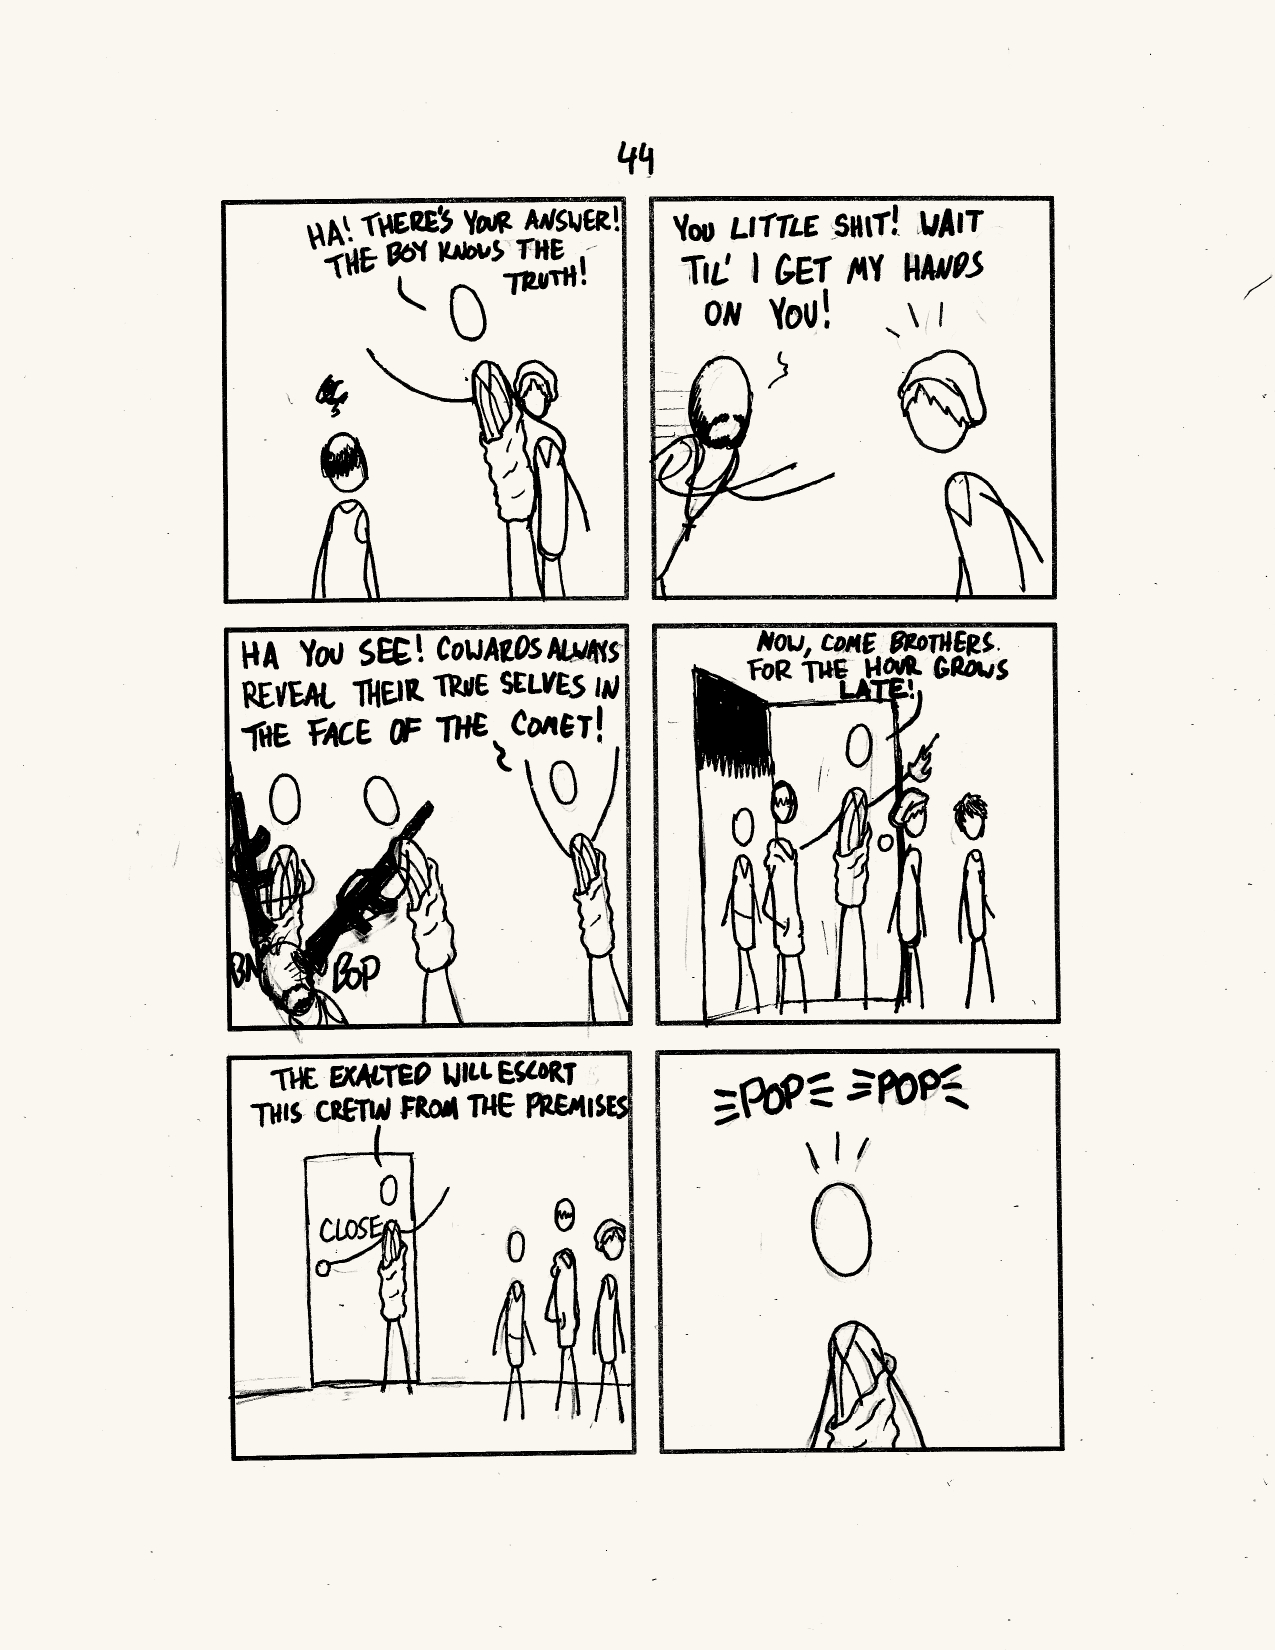 44
HA! THERE'S YOUR ANSWER!
THE BOY KNOWS THE
TRUTH!
YOU LITTLE SHIT! WAIT
TIL' I GET MY HANDS
ON YOU!
HA YOU SEE! COWARDS ALWAYS
REVEAL THEIR TRUE SELVES IN
THE FACE OF THE COMET!
BOP
NOW, COME BROTHERS.
FOR THE HOUR GROWS
LATE!
THE EXALTED WILL ESCORT
THIS CRETIN FROM THE PREMISES
CLOSE
POP POP